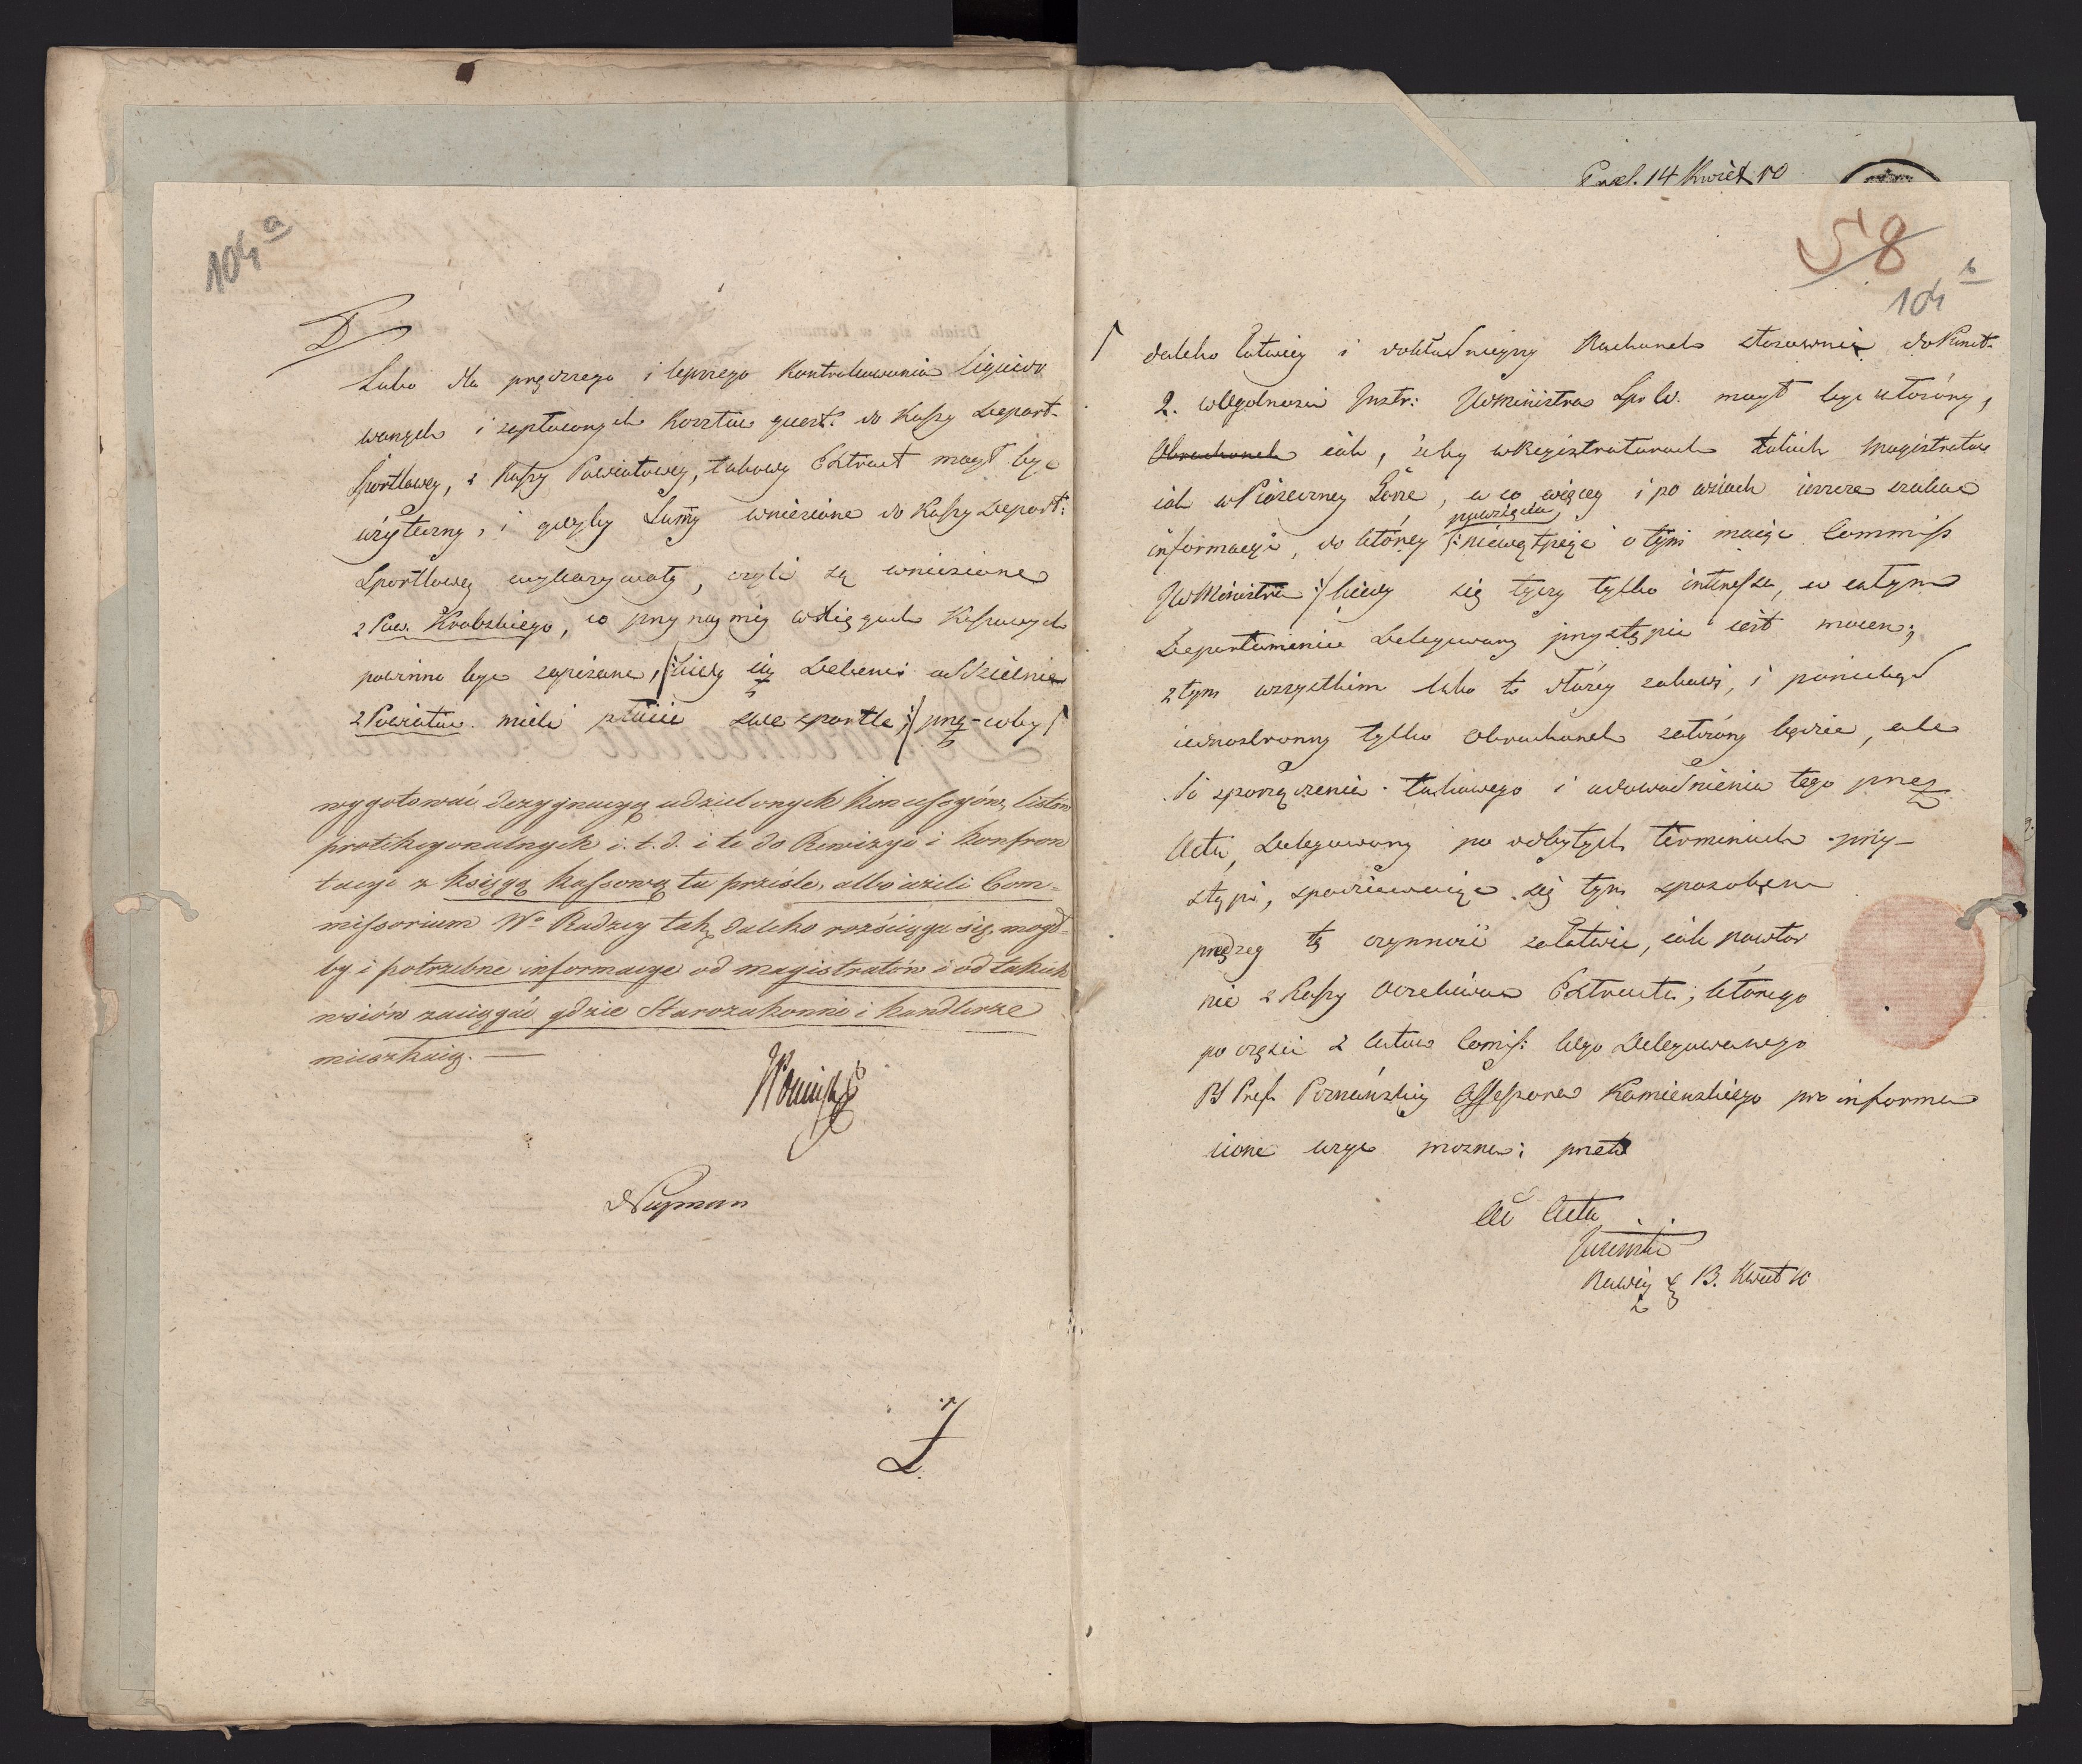 104 a
Lubo dla prędszego i lepszego Kontrolowania liquido
wanych i zapłaconych Kosztów quest: do Kassy Depart-
Sportlowey, z Kassy Powiatowey, takowy Extract mogł byc
użyteczny, i gdyby Summy wniesione do Kassy Depart:
Sportlowey wykazywały, czyli są wniesione
z Pow. Krobskiego, co przynaymniey w Xięgach Kassowych
powinno byc zapisane, /: kiedy się oddzielnie
z Powiatów mieli swe sportle :/ 
wygotować dezygnacyą udzielonych Koncessyów, listów
protekcyonalnych i. t. d. i te do Rewizyi i konfron
tacyi z księgą kassową tu prześle, albo ieżeli Com=
missorium Wo Radzcy tak daleko rozściąga się, mogł=
by i potrzebne informacye od magistratów i od takich
wsiów zaciągać gdzie Starozakonni i handlerze
mieszkaią. —
Neyman
Prael. 14 Kwiet. 10
58
104 b
daleko łatwiey i dokładnieyszy Rachunek stosownie do Punct-
2. w Ogolnosci Instr: JWMinistra Spr W. mogł byc utworzony,
Obrachunek iak, żeby w Registraturach takich Magistratów
iak w Piaseczney Górze, a co więcey i po wsiach ieszcze szukac
informacyi, do którey /: niewątpię o tym maiąc Commiss
JWMinistra :/ kiedy się tyczy tylko interessa, w całym
Departamencie Delegowany przystąpic iest mocen;
z tym wszystkim lubo to dłużey zabawi, i poniekąd
iednostronny tylko Obrachunek zrobiony będzie, ale
do sporządzenia takiowego i udowodnienia tego przez
Acta, Delegowany po odbytych terminach przy-
stąpi, spodziewaiąc się tym sposobem
prędzey tę czynność załatwic, iak powtor
nie z Kassy Oczekiwac Extractu, którego
po części z Aktów Comiss: tego Delegowanego
Pref. Poznańskiey Assessora Kamienskiego pro informa
tione użyc można; przeto
ad Acta
13. Kwiet 10